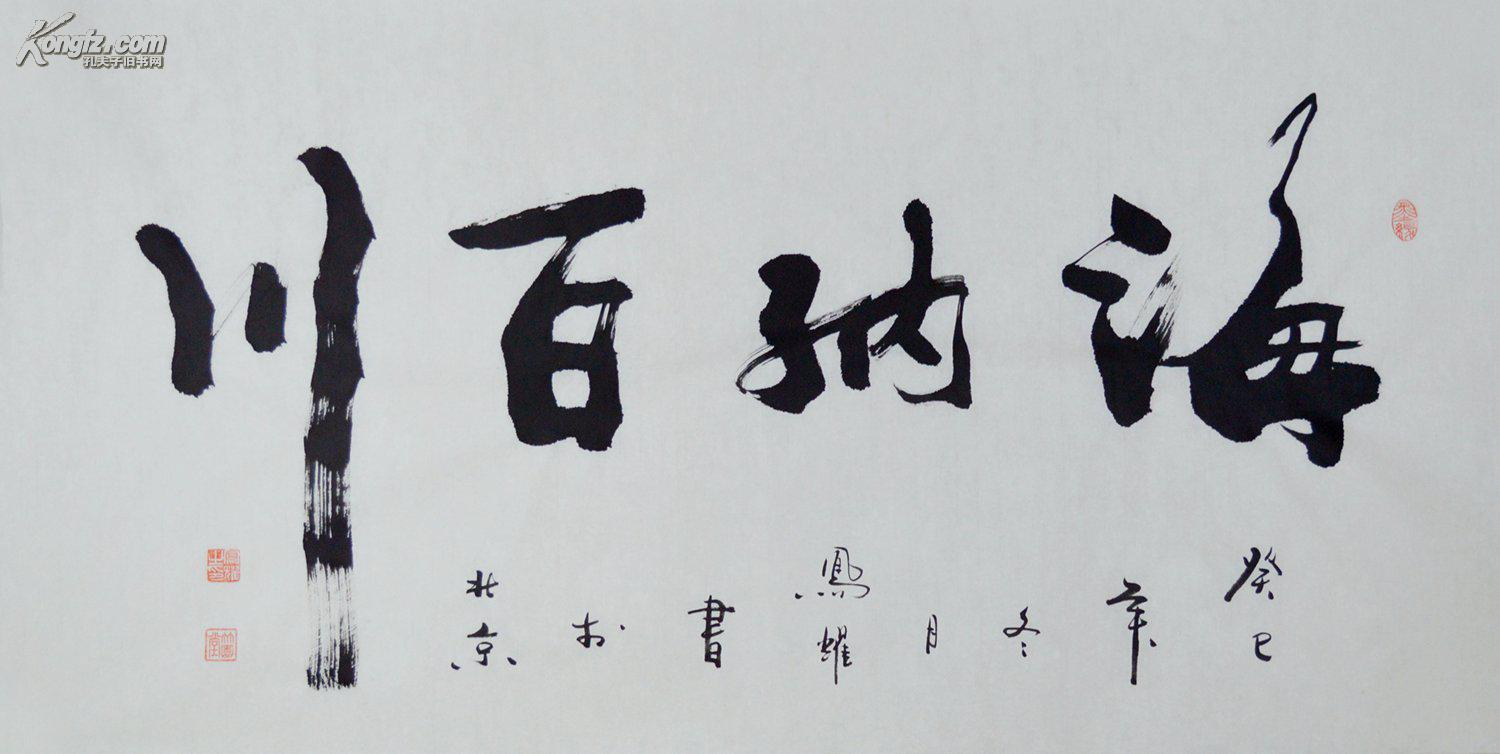 Kongfz.com
孔夫子旧书网
海纳百川
癸巳年冬月鳳耀書於北京